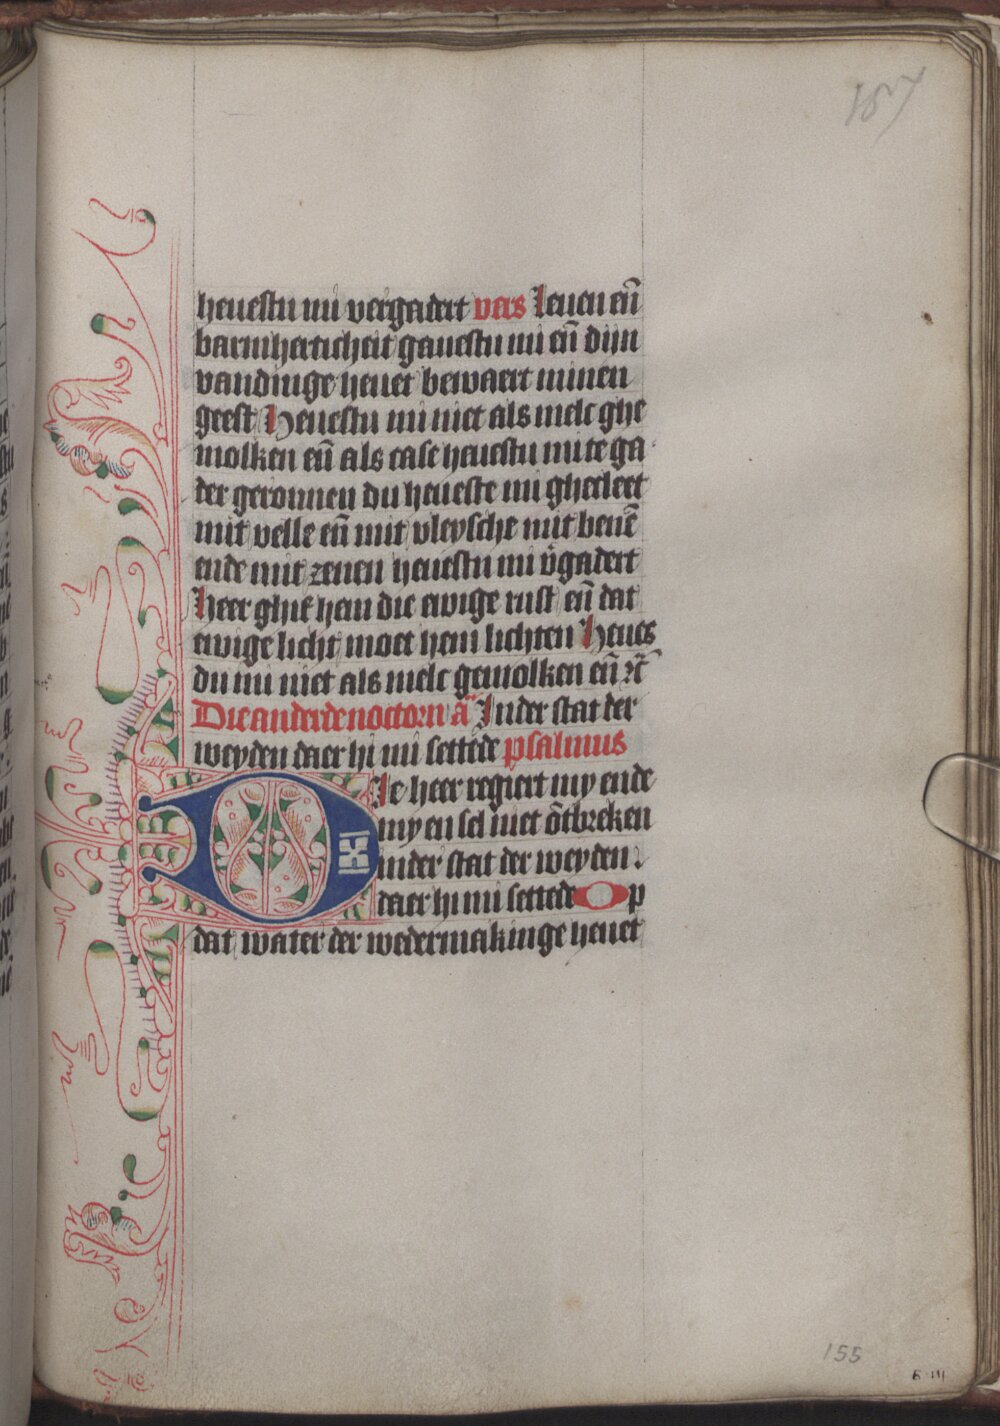 157
heuestu mi vergadert vers Leuen en̄
barmherticheit gauestu mi en̄ dijn
vandinge heuet bewaert minen
geest Heuestu mi niet als melc ghe
molken en̄ als case heuestu mi te ga
der geronnen du heueste mi ghecleet
mit velle en̄ mit vleysche mit benē
ende mit zenen heuestu mi v̄gadert
Heer ghif hem die ewige rust en̄ dat
ewige licht moet hem lichten Heues
du mi niet als melc gemolken en̄ ꝛc̄
Die anderde noctorn ā In der stat der
weyden daer hi mi settēde psalmus
Die heer regiert my ende
my en sel niet ōtbreken
in der stat der weyden
daer hi mi settede Op
dat water der wedermakinge heuet
155